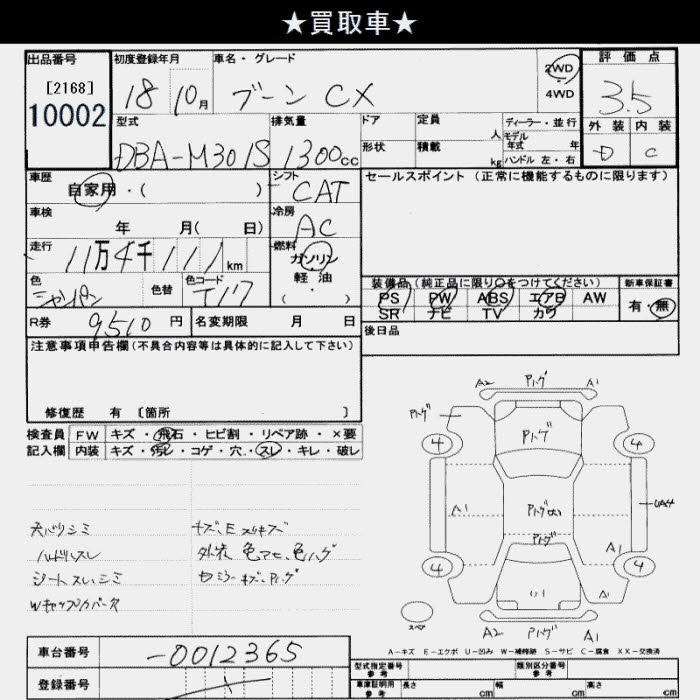 ★買取車★
出品番号
[2168]
10002
初度登録年月
18 10月
車名・グレード
ブーン CX
2WD
4WD
評価点
3.5
外装 内装
D C
型式
DBA-M301S
排気量
1300cc
ドア
形状
定員
人
積載
kg
ディーラー・並行
モデル年式 年
ハンドル 左・右
車歴
自家用・( )
シフト
CAT
セールスポイント (正常に機能するものに限ります)
車検
年 月( 日)
冷房
AC
走行
11万4千111km
燃料
ガソリン
軽油
( ・ )
色
シャンパン
色替
色コード
T17
装備品(純正品に限り○をつけてください)
PS PW ABS エアB AW
SR ナビ TV カワ
新車保証書
有・無
R券 9510円
名変期限 月 日
後日品
注意事項申告欄(不具合内容等は具体的に記入して下さい)
修復歴 有 [箇所 ]
検査員
記入欄
FW キズ・飛石・ヒビ割・リペア跡・×要
内装 キズ・汚レ・コゲ・穴・スレ・キレ・破レ
天バリシミ
ハンドルスレ
シートスレ、シミ
Wキャップカバー欠
外装 色アセ、色ハゲ
A2 Pハゲ A1
Pハゲ
4 Pハゲ 4
A1 Pハゲ(大) UA4
Pハゲ
A1
4 4
A1
スペア
A2 Pハゲ A1
A-キズ E-エクボ U-凹み W-補修跡 S-サビ C-腐食 XX-交換済
車台番号
-0012365
登録番号
型式指定番号
参考
類別区分番号
参考
車庫証明用
参考
長さ cm 幅 cm 高さ cm